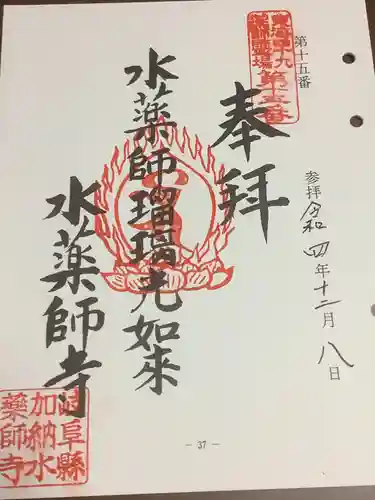 第十五番
東海四十九
薬師霊場第十五番
奉拝
参拝 令和四年十二月八日
水薬師瑠璃光如来
水薬師寺
岐阜縣
加納水
薬師寺
- 37 -